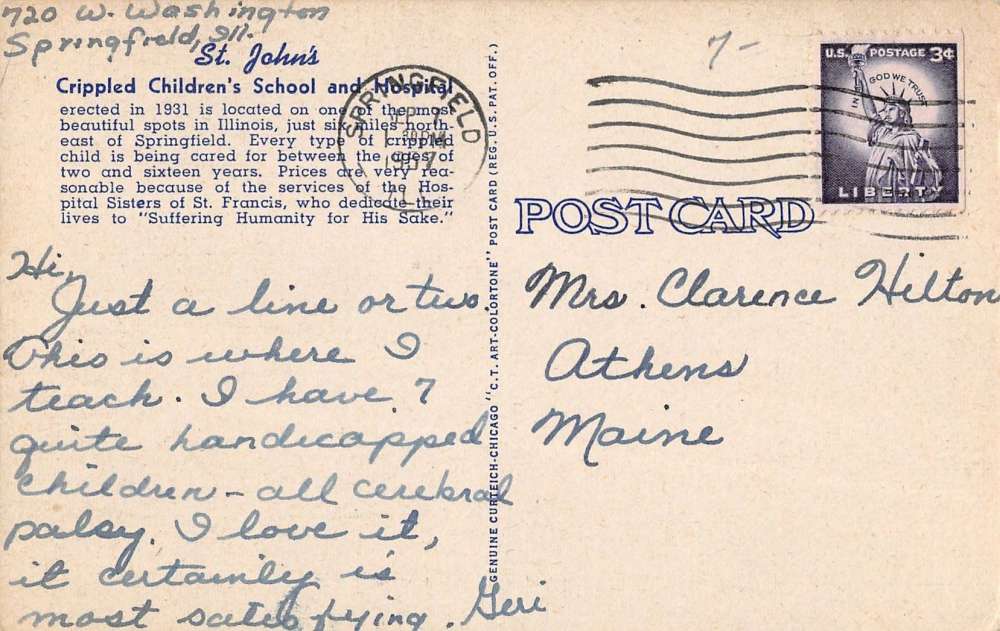 720 W. Washington
Springfield, Ill.
St. John's
Crippled Children's School and Hospital
erected in 1931 is located on one of the most
beautiful spots in Illinois, just six miles north-
east of Springfield. Every type of crippled
child is being cared for between the ages of
two and sixteen years. Prices are very rea-
sonable because of the services of the Hos-
pital Sisters of St. Francis, who dedicate their
lives to "Suffering Humanity for His Sake."
Hi,
Just a line or two.
This is where I
teach. I have 7
quite handicapped
children - all cerebral
palsy. I love it,
it certainly is
most satisfying. Geri
GENUINE CURTEICH-CHICAGO "C.T. ART-COLORTONE" POST CARD (REG. U.S. PAT. OFF.)
SPRINGFIELD
PM
1957
ILL
7-
U.S. POSTAGE 3¢
IN GOD WE TRUST
LIBERTY
POST CARD
Mrs. Clarence Hilton
Athens
Maine